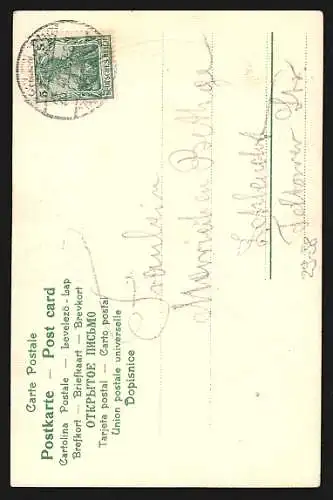 Carte Postale
Postkarte – Post card
Cartolina Postale – Levelező-Lap
Brefkort – Briefkaart – Brevkort
ОТКРЫТОЕ ПИСЬМО
Tarjeta postal – Carto postal
Union postale universelle
Dopisnice
Fräulein
Mariechen Bethge
Zehlendorf
Teltower Str
5
5